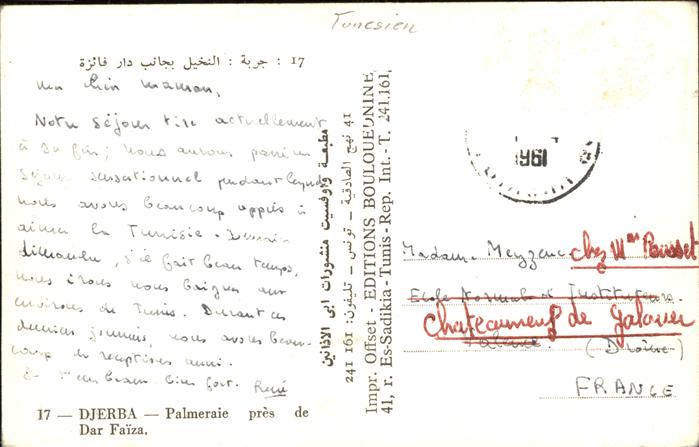 Tunesien
17 : جربة : النخيل بجانب دار فائزة
ma chère maman,
Notre séjour tire actuellement
à sa fin ; nous aurons passé un
séjour sensationnel pendant lequel
nous avons beaucoup appris à
aimer la Tunisie. Demain
dimanche, s'il fait beau temps,
nous irons nous baigner aux
environs de Tunis. Durant ces
derniers jours, nous avons beau-
coup de réceptions aussi.
Je t'embrasse bien fort. René
17 — DJERBA — Palmeraie près de
Dar Faïza.
مطبعة واوفسيت منشورات ابى الاذانين
41 نهج الصادقية - تونس - تليفون : 161 241
Impr. Offset - EDITIONS BOULOUEDNINE
41, r. Es-Sadikia - Tunis - Rep. Int. - T. 241.161,
1961
Madame Meyzenc chez Mme Pousset
Ecole Normale d'Instituteurs
Chateauneuf de Galaure
Valence (Drôme)
FRANCE